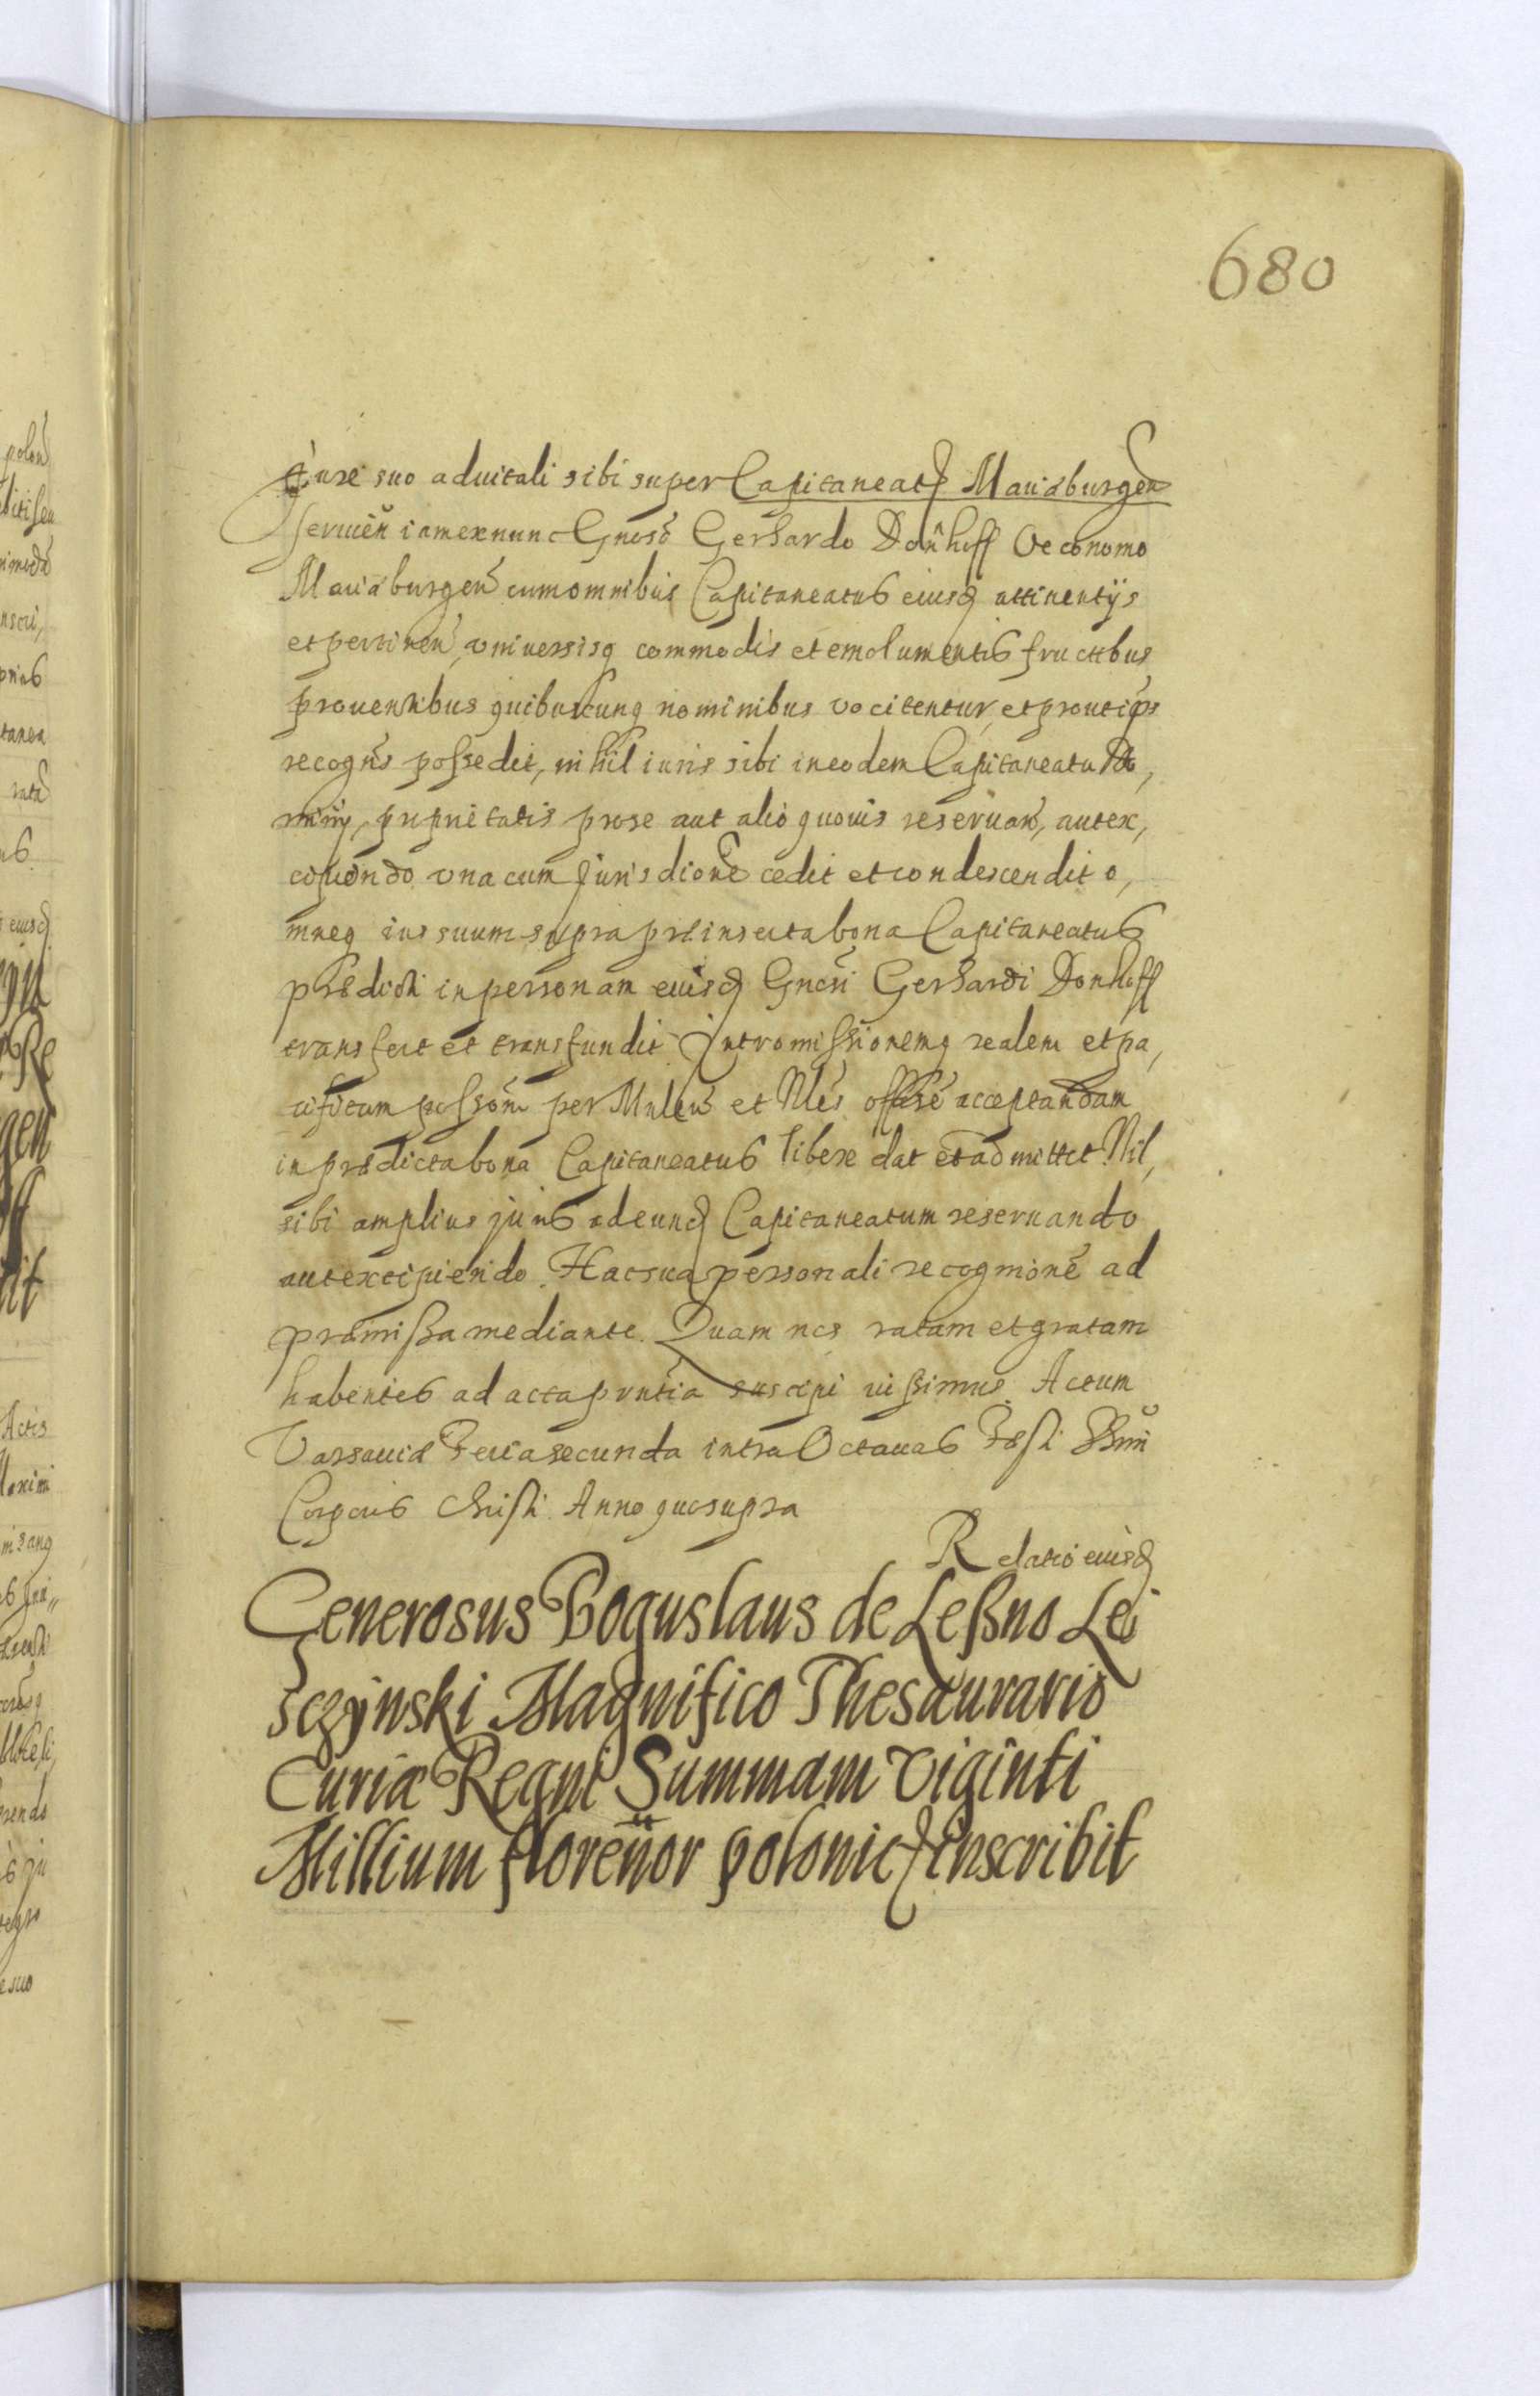 680
iure suo aduitali sibi super Capitaneatū Mariæburgeñ
seruieñ iam ex nunc Gnoso Gerhardo Donhoff Oeconomo
Mariæburgeñ cum omnibus Capitaneatus eiusdē attinentijs
et pertineñ, vniuersisq commodis et emolumentis fructibus
prouentibus quibuscunq nominibus vocitentur, et prout ips
recogns possedit, nihil iuris sibi in eodem Capitaneatu do,
minij, proprietatis pro se aut alio quouis reseruań, aut ex,
cipiendo vna cum Jurisdione cedit et condescendit o,
mneq ius suum supra præinserta bona Capitaneatus
prædicti in personam eiusdē Gnosi Gerhardi Donhoff
transfert et transfundit Intromissionemq realem et pa,
cificam possom per Mnleū et Nles offise acceptandam
in prædicta bona Capitaneatus libere dat et admittet Nil,
sibi amplius juris ad eundē Capitaneatum reseruando
aut excipiendo. Hac sua personali recognione ad
præmissa mediante. Quam nos ratam et gratam
habentes ad acta pnntia suscipi iussimus. Actum
Varsauiæ Feria secunda intra Octauas Festi SSmi
Corporis Christi Anno quo supra
Relatio eiusdē
Generosus Boguslaus de Leßno Le
sczÿnski Magnifico Thesaurario
Curiæ Regni Summam Viginti
Millium floreñor polonic inscribit
polon
tanea
eiusdē
Actis